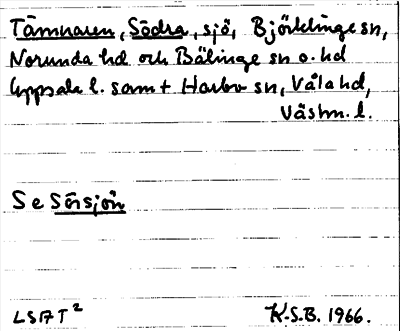 Tämnaren, Södra, sjö, Björklinge sn,
Norunda hd och Bälinge sn o. hd
Uppsala l. samt Harbo sn, Våla hd,
Västm. l.
Se Sörsjön
LSAT²
K-S.B. 1966.